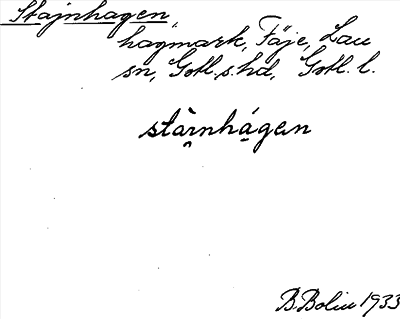 Stajnhagen,
hagmark, Fäje, Lau
sn, Gotl.s.hd, Gotl. l.
stàrnhágen
B. Bolin 1933